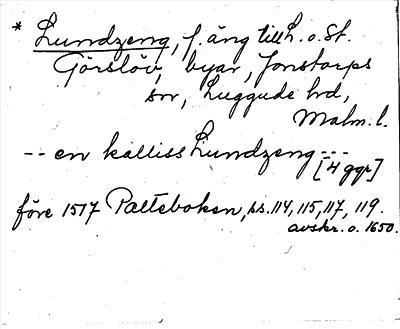 * Lundzeng, f. äng till L. o. St.
Görslöv, byar, Jonstorps
sn, Luggude hd,
Malm. l.
-- en kalliss Lundzeng ---
[4 ggr]
före 1517 Palteboken, ss. 114, 115, 117, 119.
avskr. o. 1650.